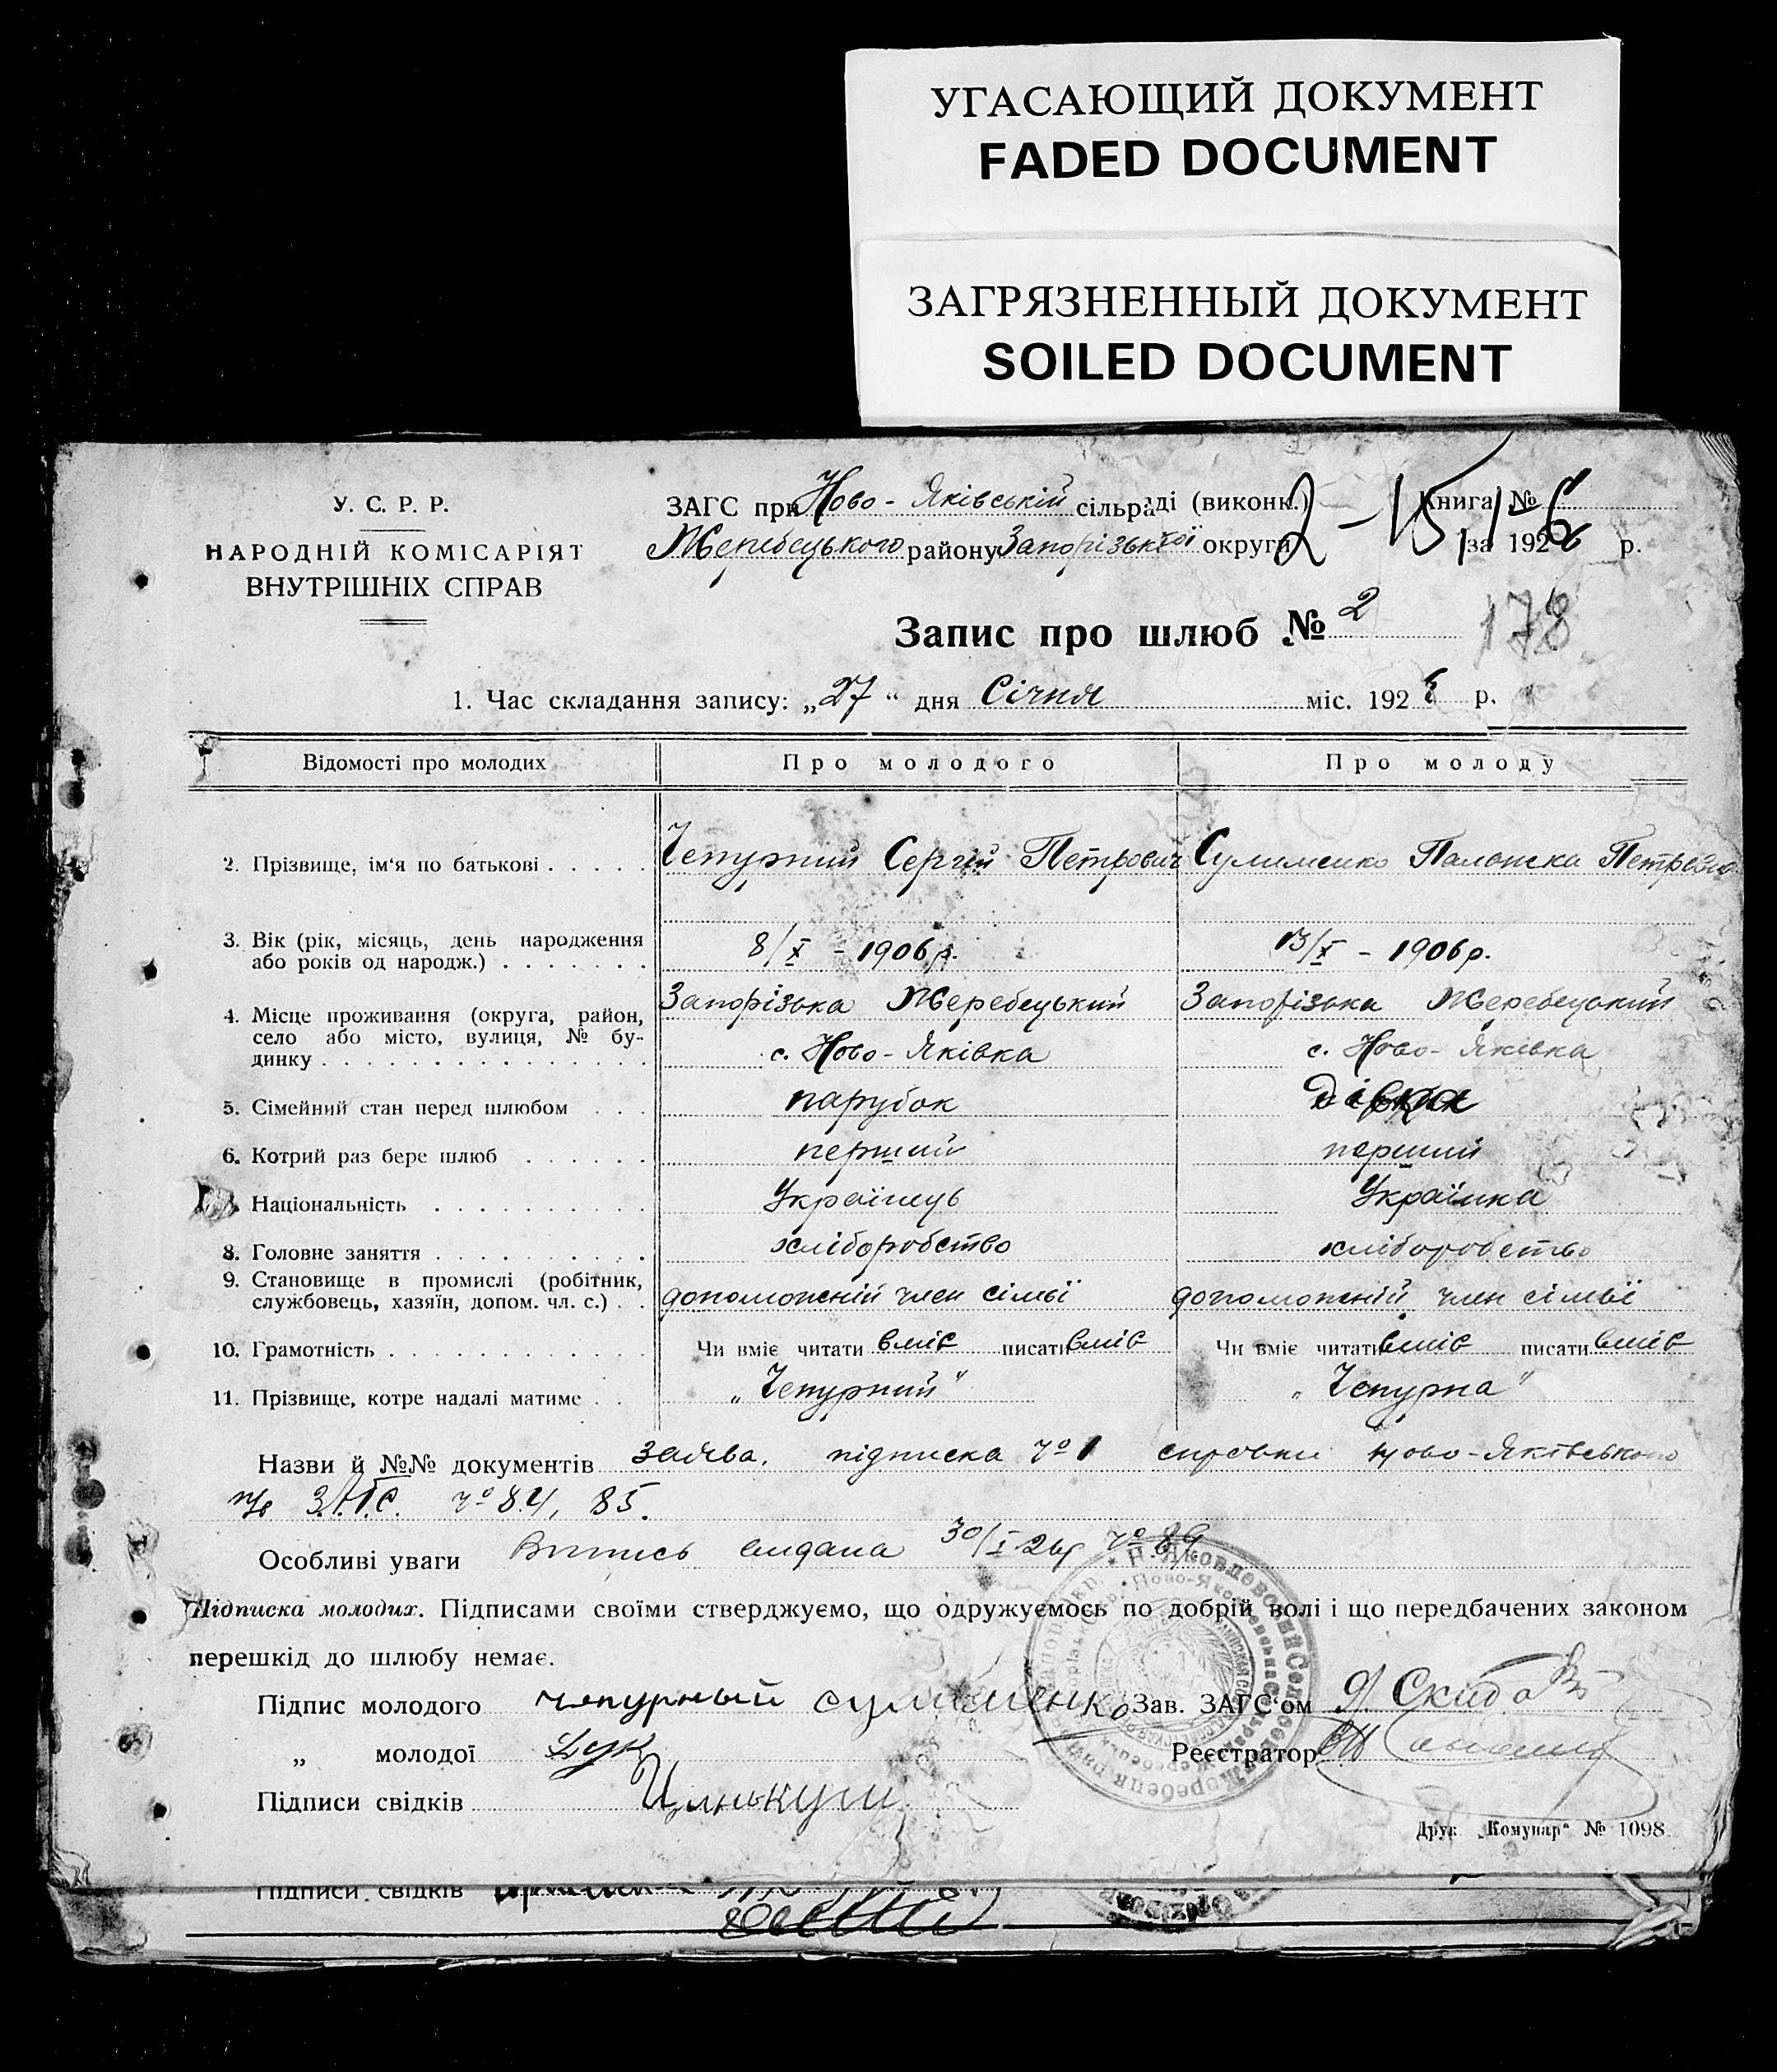 УГАСАЮЩИЙ ДОКУМЕНТ
FADED DOCUMENT
ЗАГРЯЗНЕННЫЙ ДОКУМЕНТ
SOILED DOCUMENT
У. С. Р. Р.
НАРОДНІЙ КОМІСАРІЯТ
ВНУТРІШНІХ СПРАВ
ЗАГС при Ново-Яківській сільраді (виконк.) Книга №
Жеребецького району Запорізької округи за 1926 р.
Запис про шлюб № 2
178
1. Час складання запису: „27“ дня Січня міс. 192 р.
Відомості про молодих Про молодого Про молоду
2. Прізвище, ім'я по батькові Чепурний Сергій Петрович Сулименко Палажка Петрівна
3. Вік (рік, місяць, день народження
або років од народж.) 8/X - 1906 р. 13/X - 1906 р.
4. Місце проживання (округа, район, Запорізька Жеребецький Запорізька Жеребецький
село або місто, вулиця, № бу-
динку с. Ново-Яківка с. Ново-Яківка
5. Сімейний стан перед шлюбом парубок Дівка
6. Котрий раз бере шлюб перший перший
Національність Українець Українка
8. Головне заняття хліборобство хліборобство
9. Становище в промислі (робітник,
службовець, хазяїн, допом. чл. с.) допоможній член сімьї допоможній член сімьї
10. Грамотність Чи вміє читати вміє писати вміє Чи вміє читати вміє писати вміє
11. Прізвище, котре надалі матиме „Чепурний“ „Чепурна“
Назви й №№ документів заява, підписка № 1 справки Ново-Яківського
З.А.Г.С. № 84, 85.
Особливі уваги Випись видана 30/I 26р № 89
Підписка молодих. Підписами своїми стверджуємо, що одружуємось по добрій волі і що передбачених законом
перешкід до шлюбу немає.
Підпис молодого чепурный сулименко Зав. ЗАГС'ом Скидо
„ молодої Реєстратор
Підписи свідків
Друк. „Комунар“ № 1098
Підписи свідків